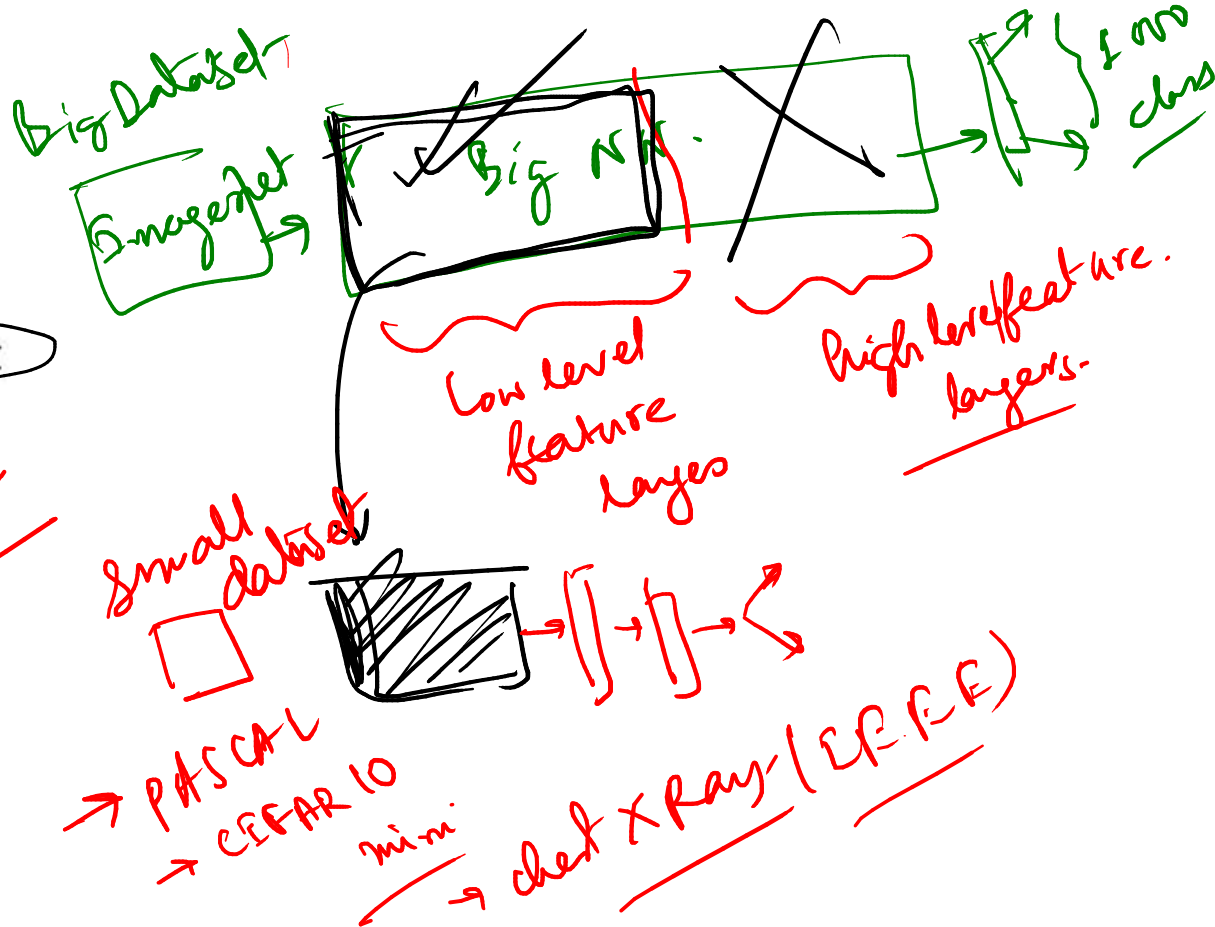 Big Dataset
Imagenet
Big NN.
1000
class
Low level
feature
layes
high level feature.
layers.
small
dataset
→ PASCAL
→ CIFAR 10
mini
→ chest X Ray (IEEE)